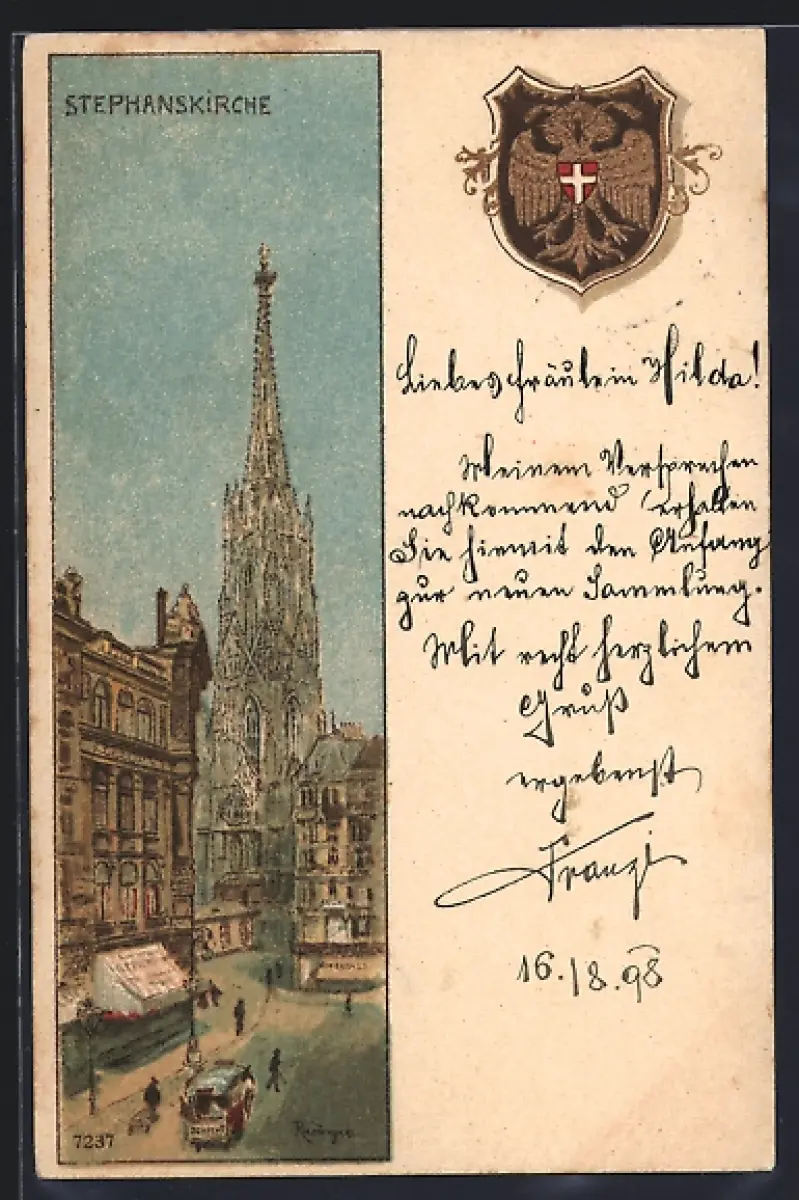 STEPHANSKIRCHE
Liebes Fräulein Hilda!
Meinem Versprechen
nachkommend erhalten
Sie hiemit den Anfang
zur neuen Sammlung.
Mit recht herzlichem
Gruß
ergebenst
Franzi
16./8.98
7237